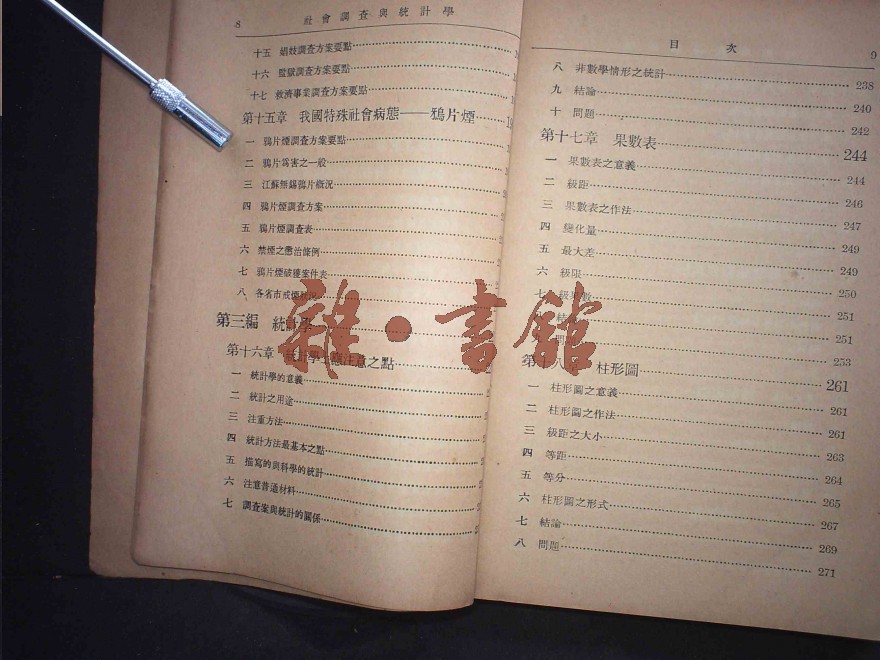 8 社會調查與統計學
十五 娼妓調查方案要點
十六 監獄調查方案要點
十七 救濟事業調查方案要點
第十五章 我國特殊社會病態——鴉片煙
一 鴉片煙調查方案要點
二 鴉片為害之一般
三 江蘇無錫鴉片概況
四 鴉片煙調查方案
五 鴉片煙調查表
六 禁煙之懲治條例
七 鴉片煙破獲案件表
八 各省市戒煙
第三編 統計學
第十六章 統計學上應注意之點
一 統計學的意義
二 統計之用途
三 注重方法
四 統計方法最基本之點
五 描寫的與科學的統計
六 注意普通材料
七 調查案與統計的關係
目次 9
八 非數學情形之統計 238
九 結論 240
十 問題 242
第十七章 果數表 244
一 果數表之意義 244
二 級距 246
三 果數表之作法 247
四 變化量 249
五 最大差 249
六 級限 250
七 級果數 251
結 251
問 253
第十八 柱形圖 261
一 柱形圖之意義 261
二 柱形圖之作法 261
三 級距之大小 263
四 等距 264
五 等分 265
六 柱形圖之形式 267
七 結論 269
八 問題 271
雜·書館